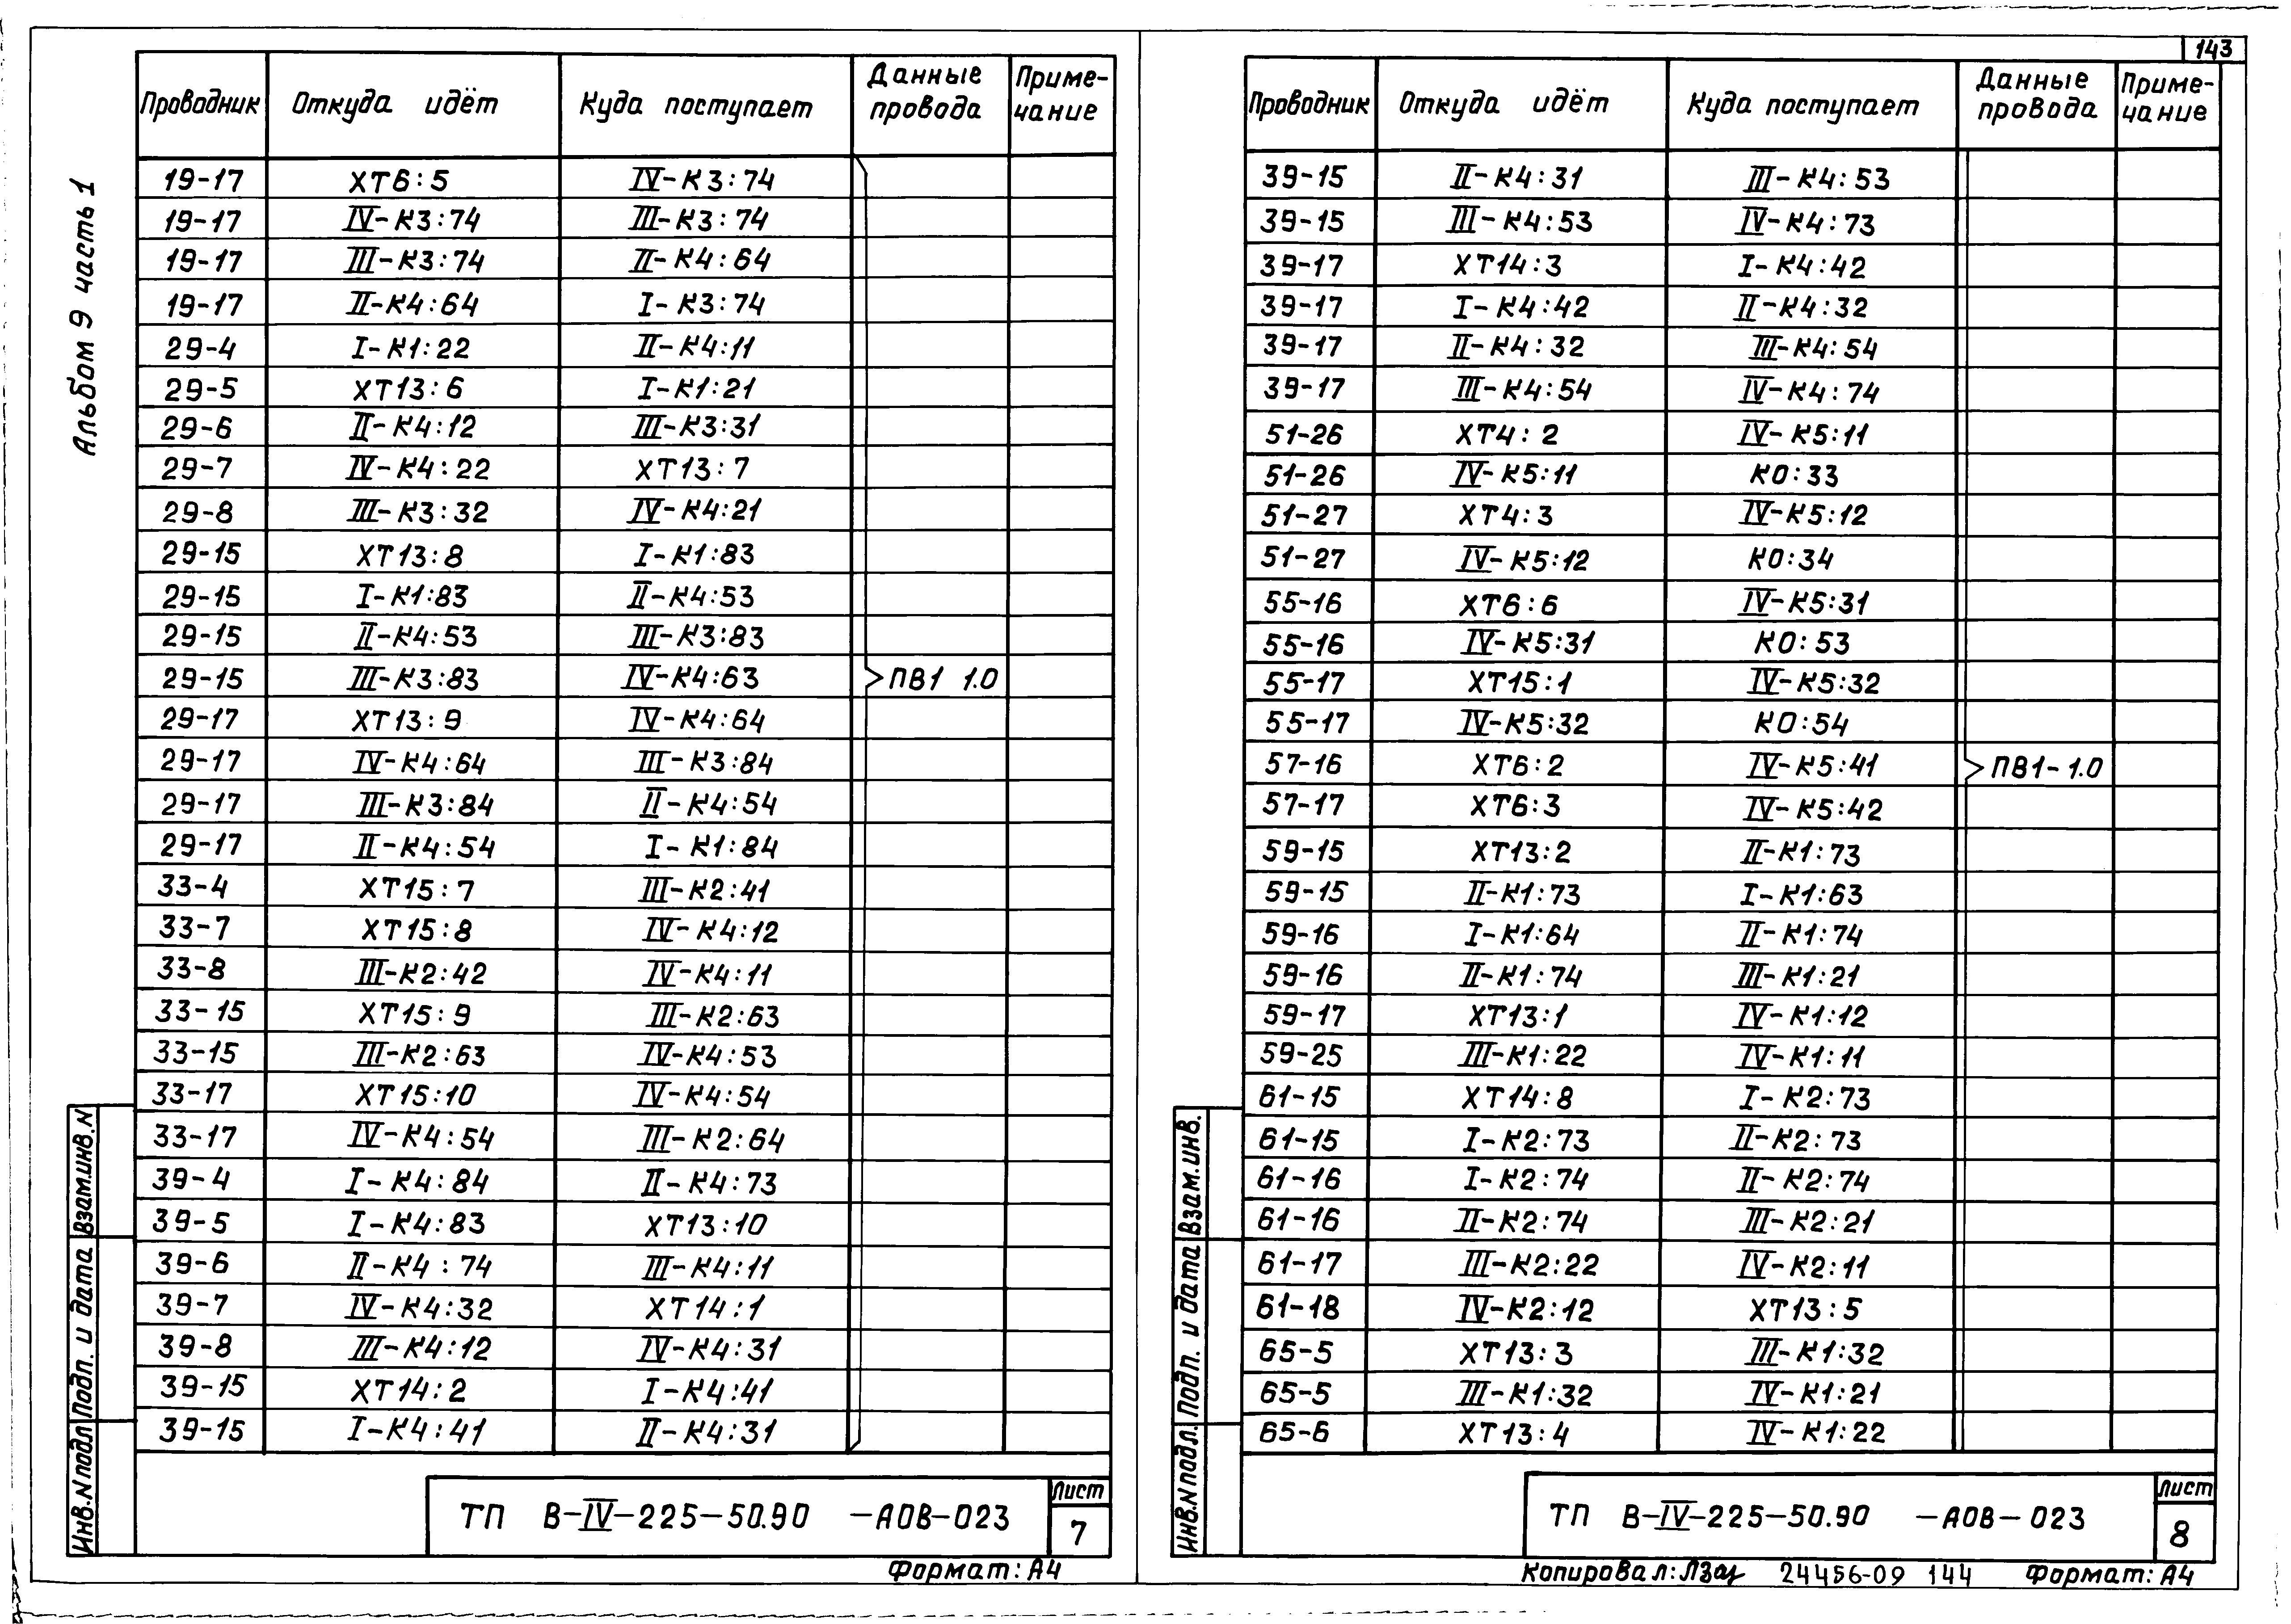 143
Альбом 9 часть 1
Проводник Откуда идёт Куда поступает Данные провода Приме-чание
19-17 XT6:5 IV-К3:74
19-17 IV-К3:74 III-К3:74
19-17 III-К3:74 II-К4:64
19-17 II-К4:64 I-К3:74
29-4 I-К1:22 II-К4:11
29-5 XT13:6 I-К1:21
29-6 II-К4:12 III-К3:31
29-7 IV-К4:22 XT13:7
29-8 III-К3:32 IV-К4:21
29-15 XT13:8 I-К1:83
29-15 I-К1:83 II-К4:53
29-15 II-К4:53 III-К3:83
29-15 III-К3:83 IV-К4:63 ПВ1 1.0
29-17 XT13:9 IV-К4:64
29-17 IV-К4:64 III-К3:84
29-17 III-К3:84 II-К4:54
29-17 II-К4:54 I-К1:84
33-4 XT15:7 III-К2:41
33-7 XT15:8 IV-К4:12
33-8 III-К2:42 IV-К4:11
33-15 XT15:9 III-К2:63
33-15 III-К2:63 IV-К4:53
33-17 XT15:10 IV-К4:54
33-17 IV-К4:54 III-К2:64
39-4 I-К4:84 II-К4:73
39-5 I-К4:83 XT13:10
39-6 II-К4:74 III-К4:11
39-7 IV-К4:32 XT14:1
39-8 III-К4:12 IV-К4:31
39-15 XT14:2 I-К4:41
39-15 I-К4:41 II-К4:31
Взам.инв.N
Подп. и дата
Инв.N подл
ТП В-IV-225-50.90 -АОВ-023
Лист
7
Формат: А4
Проводник Откуда идёт Куда поступает Данные провода Приме-чание
39-15 II-К4:31 III-К4:53
39-15 III-К4:53 IV-К4:73
39-17 XT14:3 I-К4:42
39-17 I-К4:42 II-К4:32
39-17 II-К4:32 III-К4:54
39-17 III-К4:54 IV-К4:74
51-26 XT4:2 IV-К5:11
51-26 IV-К5:11 К0:33
51-27 XT4:3 IV-К5:12
51-27 IV-К5:12 К0:34
55-16 XT6:6 IV-К5:31
55-16 IV-К5:31 К0:53
55-17 XT15:1 IV-К5:32
55-17 IV-К5:32 К0:54
57-16 XT6:2 IV-К5:41 ПВ1-1.0
57-17 XT6:3 IV-К5:42
59-15 XT13:2 II-К1:73
59-15 II-К1:73 I-К1:63
59-16 I-К1:64 II-К1:74
59-16 II-К1:74 III-К1:21
59-17 XT13:1 IV-К1:12
59-25 III-К1:22 IV-К1:11
61-15 XT14:8 I-К2:73
61-15 I-К2:73 II-К2:73
61-16 I-К2:74 II-К2:74
61-16 II-К2:74 III-К2:21
61-17 III-К2:22 IV-К2:11
61-18 IV-К2:12 XT13:5
65-5 XT13:3 III-К1:32
65-5 III-К1:32 IV-К1:21
65-6 XT13:4 IV-К1:22
Взам.инв.
Подп. и дата
Инв.N подл.
ТП В-IV-225-50.90 -АОВ-023
Лист
8
Копировал: 24456-09 144 Формат: А4